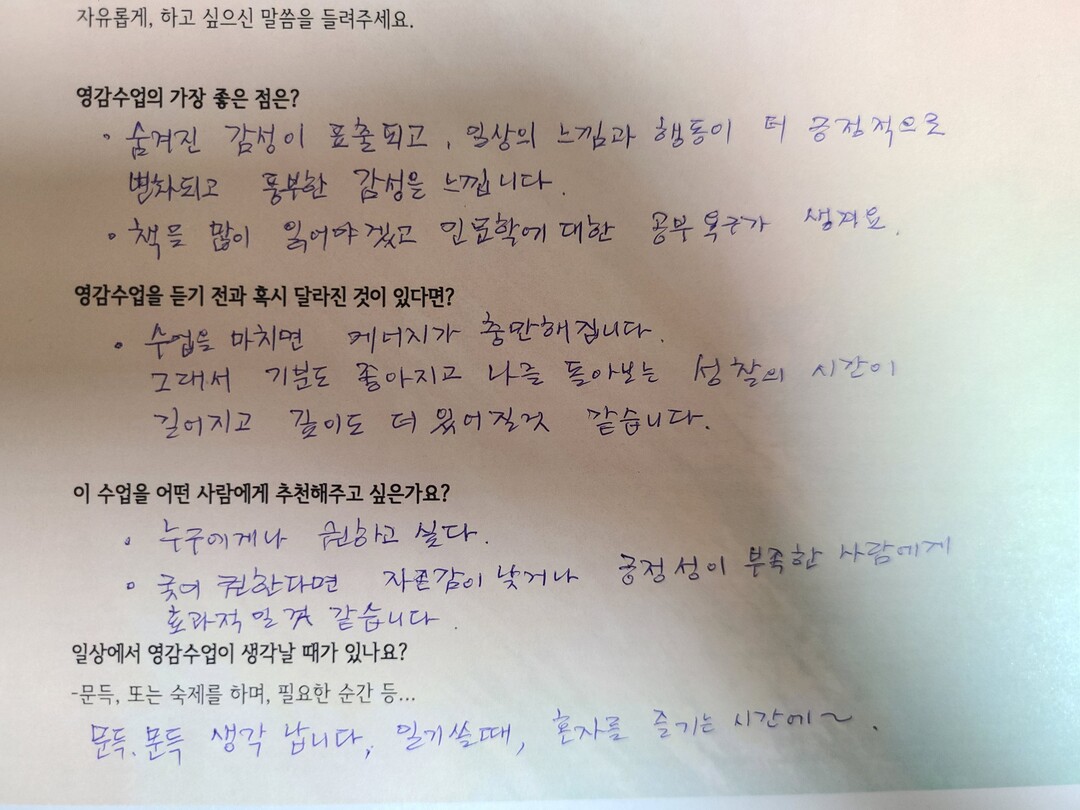 자유롭게, 하고 싶으신 말씀을 들려주세요.
영감수업의 가장 좋은 점은?
• 숨겨진 감성이 표출되고, 일상의 느낌과 행동이 더 긍정적으로
변화되고 풍부한 감성을 느낍니다.
• 책을 많이 읽어야겠고 인문학에 대한 공부 욕구가 생겨요.
영감수업을 듣기 전과 혹시 달라진 것이 있다면?
• 수업을 마치면 에너지가 충만해집니다.
그래서 기분도 좋아지고 나를 돌아보는 성찰의 시간이
길어지고 깊이도 더 있어질것 같습니다.
이 수업을 어떤 사람에게 추천해주고 싶은가요?
• 누구에게나 권하고 싶다.
• 굳이 권한다면 자존감이 낮거나 긍정성이 부족한 사람에게
효과적일것 같습니다.
일상에서 영감수업이 생각날 때가 있나요?
-문득, 또는 숙제를 하며, 필요한 순간 등...
문득.문득 생각 납니다, 일기쓸때, 혼자를 즐기는 시간에~.